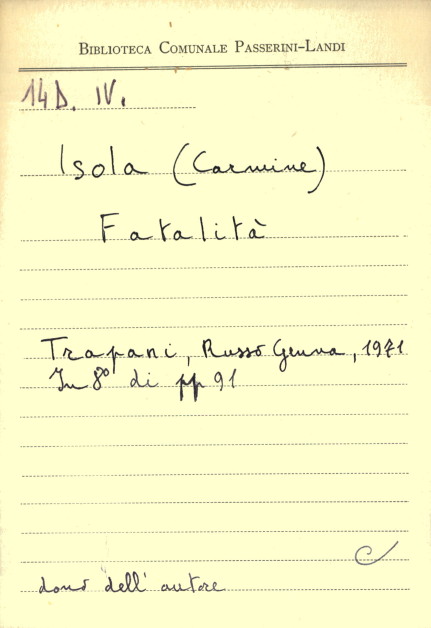 BIBLIOTECA COMUNALE PASSERINI-LANDI
14D. IV.
Isola (Carmine)
Fatalità
Trapani, Russo Genna, 1971
In 8° di pp 91
dono dell' autore